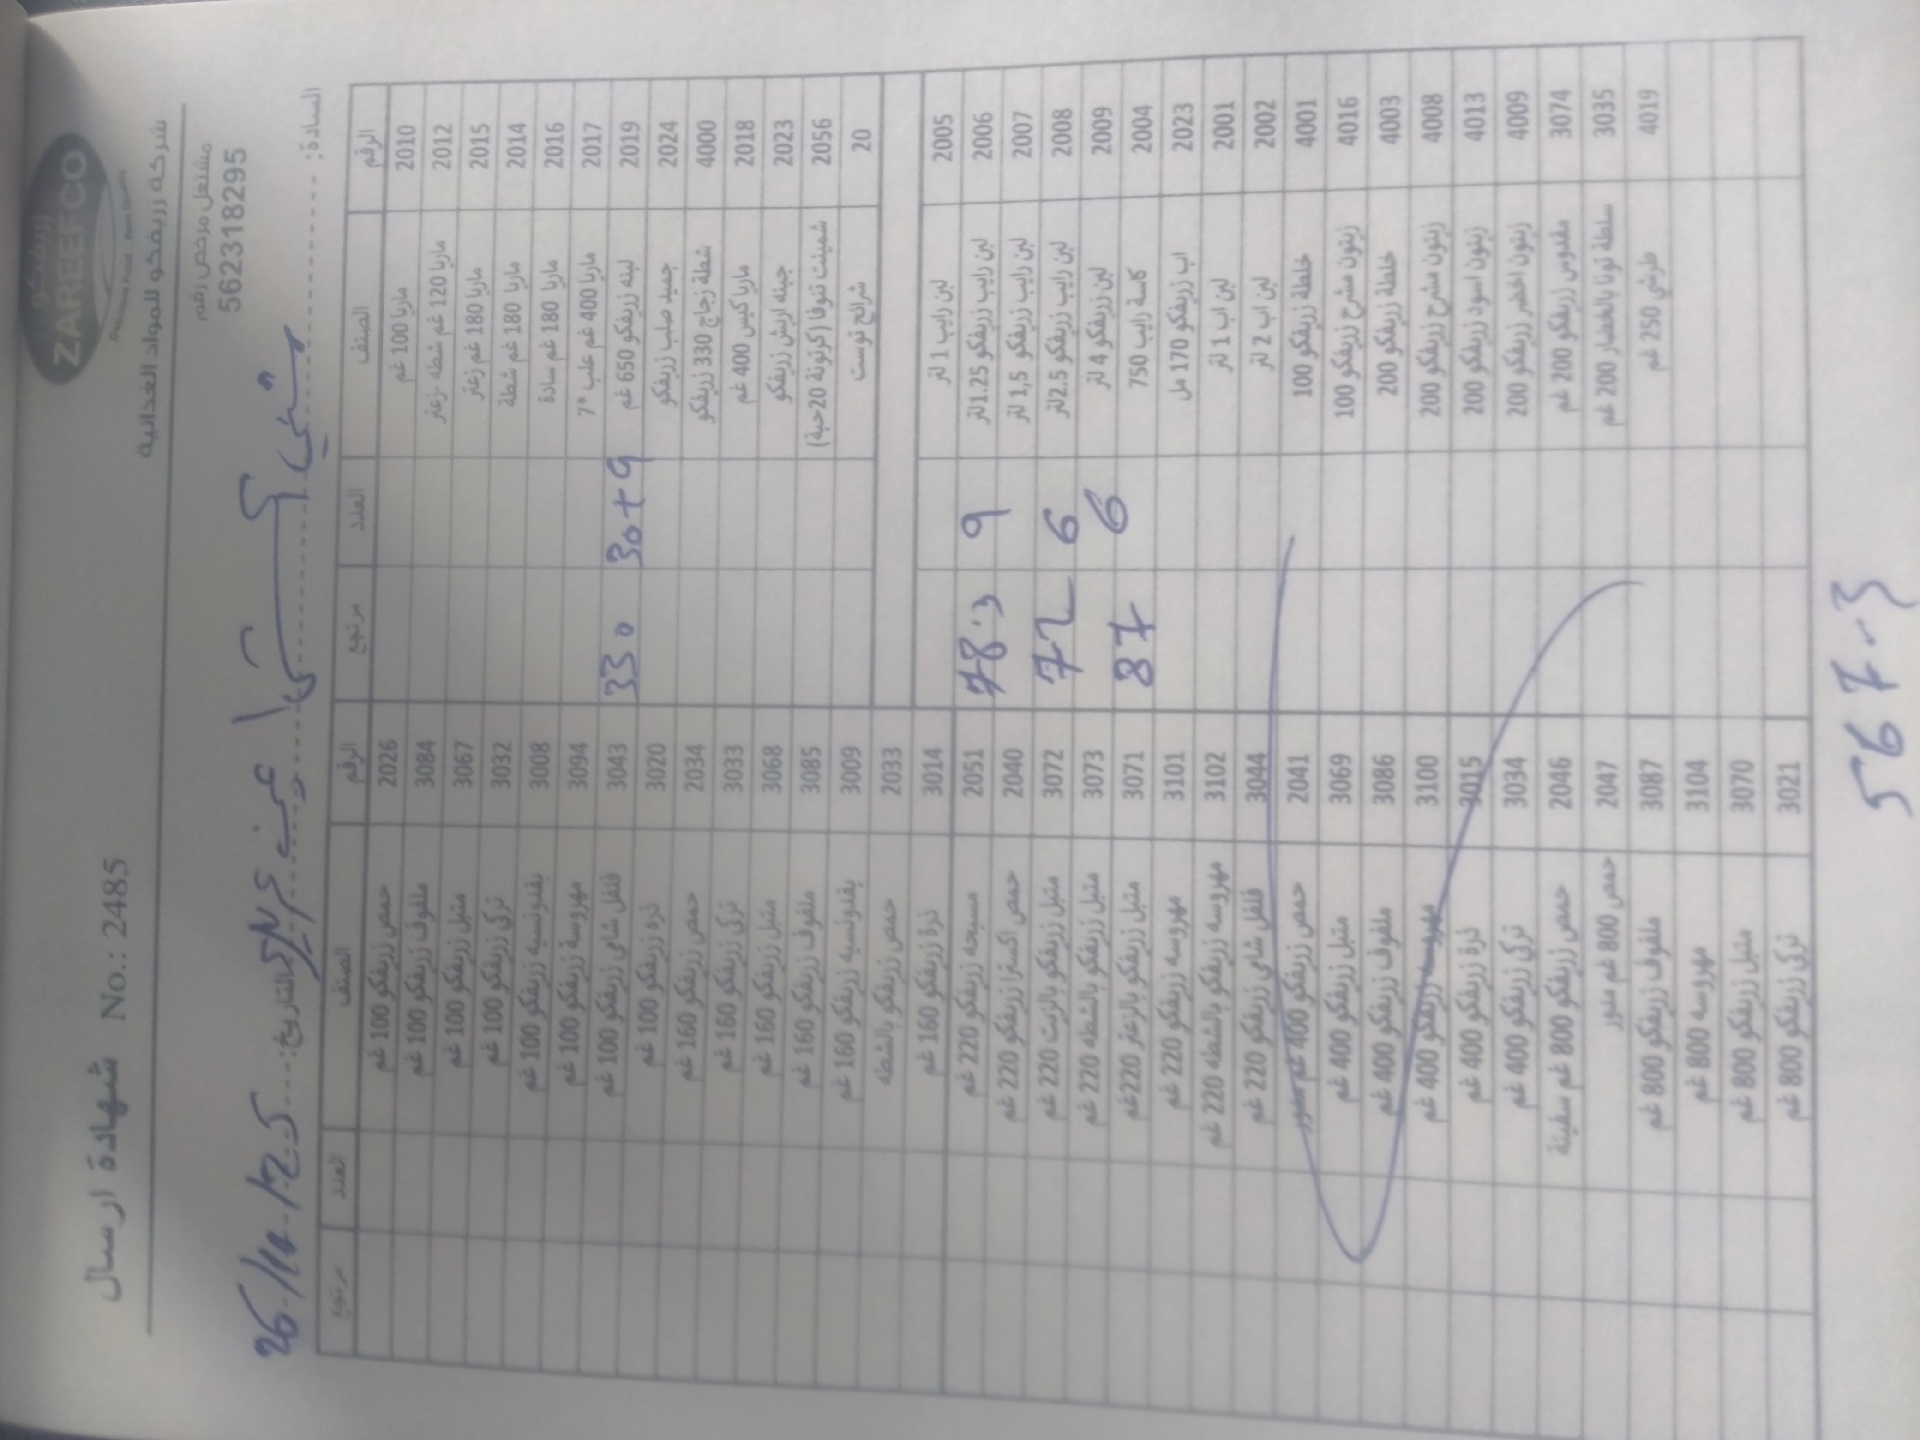 زريفكو
ZAREEFCO
شركة زريفكو للمواد الغذائية
شهادة ارسال No.: 2485
مشتغل مرخص رقم
562318295
السادة:
التاريخ: 26/10/25
الرقم الصنف العدد مرتجع الرقم الصنف العدد مرتجع
2010 ماربا 100 غم 2026 حمص زريفكو 100 غم
2012 ماربا 120 غم شطه -زعتر 3084 ملفوف زريفكو 100 غم
2015 ماربا 180 غم زعتر 3067 متبل زريفكو 100 غم
2014 ماربا 180 غم شطة 3032 تركي زريفكو 100 غم
2016 ماربا 180 غم سادة 3008 بقدونسيه زريفكو 100 غم
2017 ماربا 400 غم علب *7 3094 مهروسة زريفكو 100 غم
2019 لبنه زريفكو 650 غم 30+9 330 3043 فلفل شامي زريفكو 100 غم
2024 جميد صلب زريفكو 3020 ذرة زريفكو 100 غم
4000 شطة زجاج 330 زريفكو 2034 حمص زريفكو 160 غم
2018 ماربا كيس 400 غم 3033 تركي زريفكو 160 غم
2023 جبنه اريش زريفكو 3068 متبل زريفكو 160 غم
2056 شمينت تنوفا (كرتونة 20حبة) 3085 ملفوف زريفكو 160 غم
20 شرائح توست 3009 بقدونسيه زريفكو 160 غم
2033 حمص زريفكو بالشطه
2005 لبن رايب 1 لتر 3014 ذرة زريفكو 160 غم
2006 لبن رايب زريفكو 1.25لتر 9 78.3 2051 مسبحه زريفكو 220 غم
2007 لبن رايب زريفكو 1,5 لتر 2040 حمص اكسترا زريفكو 220 غم
2008 لبن رايب زريفكو 2.5لتر 6 72 3072 متبل زريفكو بالزيت 220 غم
2009 لبن زريفكو 4 لتر 6 3073 متبل زريفكو بالشطه 220 غم
2004 كاسة رايب 750 87 3071 متبل زريفكو بالزعتر 220غم
2023 اب زريفكو 170 مل 3101 مهروسه زريفكو 220 غم
2001 لبن اب 1 لتر 3102 مهروسه زريفكو بالشطه 220 غم
2002 لبن اب 2 لتر 3044 فلفل شامي زريفكو 220 غم
4001 خلطة زريفكو 100 2041 حمص زريفكو 400 غم مدور
4016 زيتون مشرح زريفكو 100 3069 متبل زريفكو 400 غم
4003 خلطة زريفكو 200 3086 ملفوف زريفكو 400 غم
4008 زيتون مشرح زريفكو 200 3100 مهروسه زريفكو 400 غم
4013 زيتون اسود زريفكو 200 3015 ذرة زريفكو 400 غم
4009 زيتون اخضر زريفكو 200 3034 تركي زريفكو 400 غم
3074 مقدوس زريفكو 200 غم 2046 حمص زريفكو 800 غم سفينة
3035 سلطة تونا بالخضار 200 غم 2047 حمص 800 غم مدور
4019 طرشي 250 غم 3087 ملفوف زريفكو 800 غم
3104 مهروسه 800 غم
3070 متبل زريفكو 800 غم
3021 تركي زريفكو 800 غم
567-3